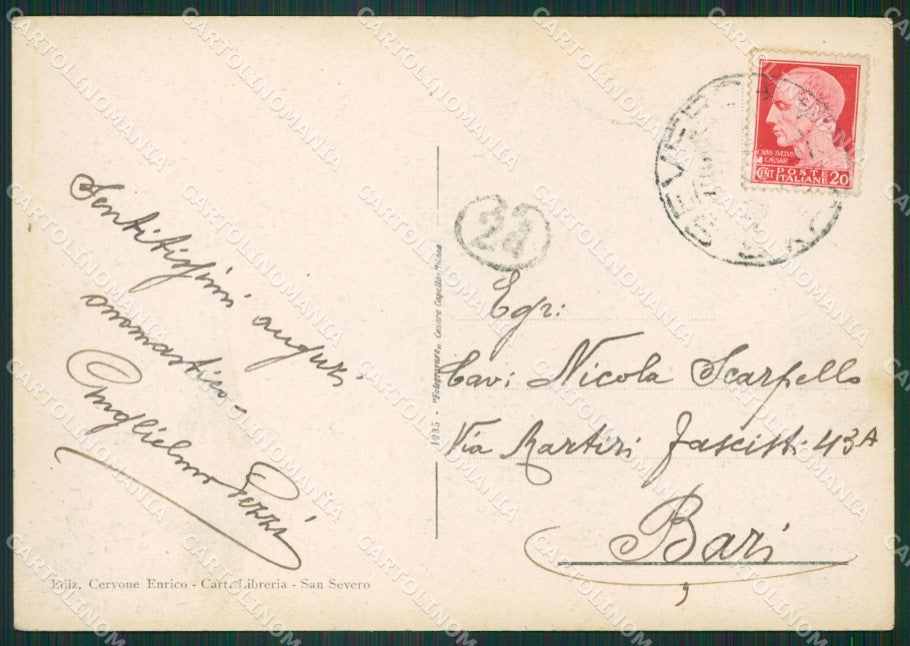 Sentitissimi auguri
onomastico -
Guglielmo Pezzi
Ediz. Cervone Enrico - Cart. Libreria - San Severo
1935 - "Fotogravure" Cesare Capello - Milano
2a
CAIVS IVLIVS
CAESAR
CENT POSTE
ITALIANE 20
Egr:
Cav: Nicola Scarpello
Via Martiri fascisti 43A
Bari
CARTOLINOMANIA